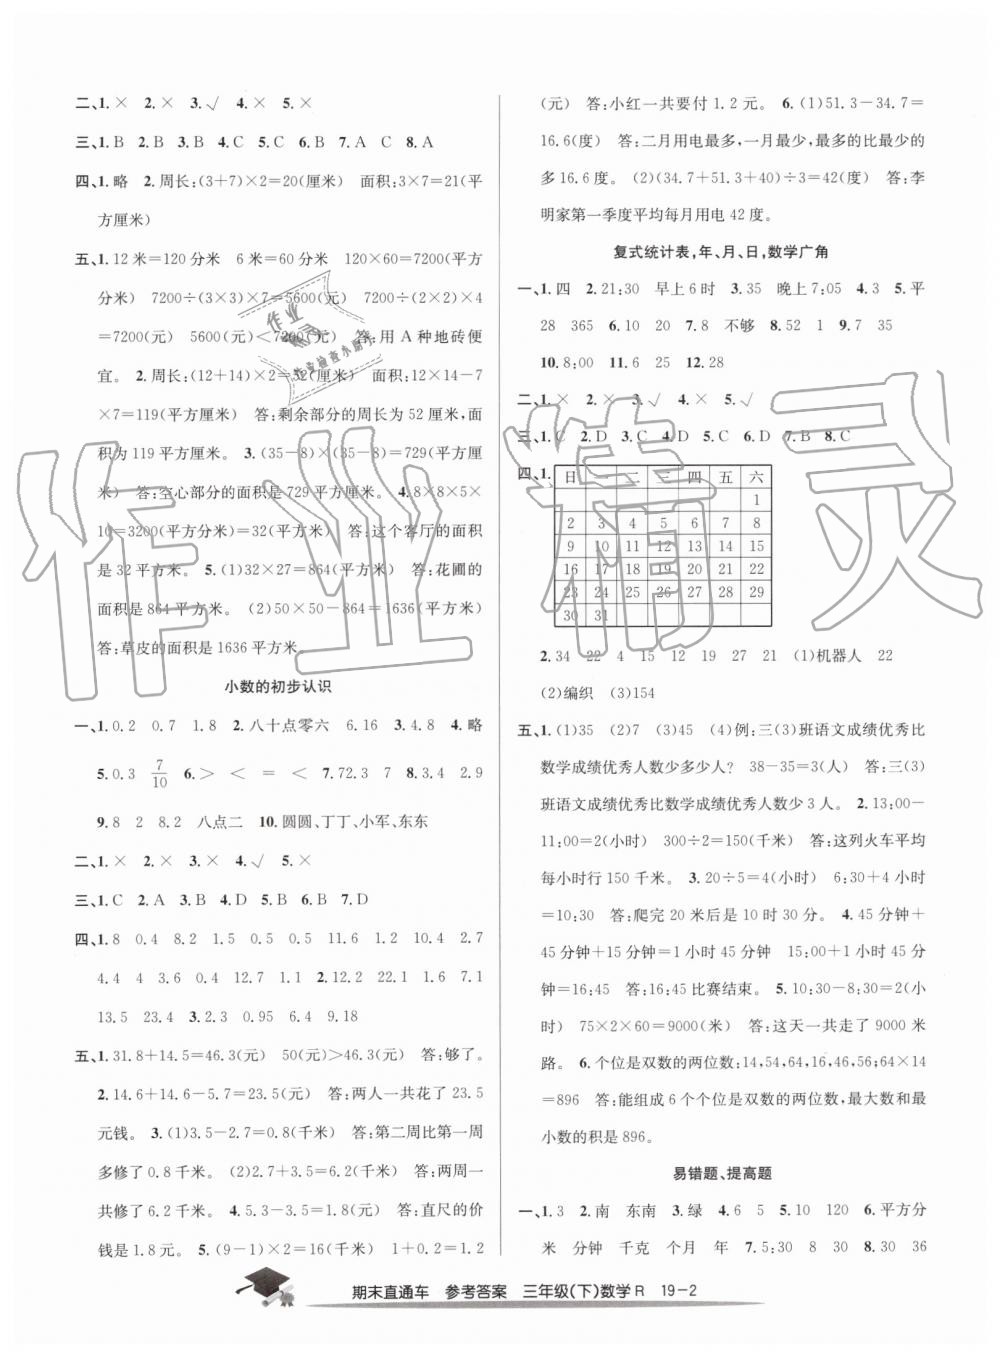 二、1.× 2.× 3.√ 4.× 5.×
三、1.B 2.B 3.B 4.C 5.C 6.B 7.C 8.A
四、1.略 2.周长:(3+7)×2=20(厘米) 面积:3×7=21(平
方厘米)
五、1.12米=120分米 6米=60分米 120×60=7200(平方
分米) 7200÷(3×3)×7=5600(元) 7200÷(2×2)×4
=7200(元) 5600(元)<7200(元) 答:用A种地砖便
宜。 2.周长:(12+14)×2=52(厘米) 面积:12×14-7
×7=119(平方厘米) 答:剩余部分的周长为52厘米,面
积为119平方厘米。 3.(35-8)×(35-8)=729(平方厘
米) 答:空心部分的面积是729平方厘米。 4.8×8×5×
10=3200(平方分米)=32(平方米) 答:这个客厅的面积
是32平方米。 5.(1)32×27=864(平方米) 答:花圃的
面积是864平方米。 (2)50×50-864=1636(平方米)
答:草皮的面积是1636平方米。
小数的初步认识
一、1.0.2 0.7 1.8 2.八十点零六 6.16 3.4.8 4.略
5.0.3 7/10 6.> < = < 7.72.3 7 8.3.4 2.9
9.8 2 8.2 八点二 10.圆圆、丁丁、小军、东东
二、1.× 2.× 3.× 4.√ 5.×
三、1.C 2.A 3.B 4.D 5.B 6.B 7.D
四、1.8 0.4 8.2 1.5 0.5 11.6 1.2 10.4 2.7
4.4 4 3.6 0.4 12.7 1.1 2.12.2 22.1 1.6 7.1
13.5 23.4 3.2.3 0.95 6.4 9.18
五、1.31.8+14.5=46.3(元) 50(元)>46.3(元) 答:够了。
2.14.6+14.6-5.7=23.5(元) 答:两人一共花了23.5
元钱。 3.(1)3.5-2.7=0.8(千米) 答:第二周比第一周
多修了0.8千米。 (2)2.7+3.5=6.2(千米) 答:两周一
共修了6.2千米。 4.5.3-3.5=1.8(元) 答:直尺的价
钱是1.8元。 5.(9-1)×2=16(千米) 1+0.2=1.2
(元) 答:小红一共要付1.2元。 6.(1)51.3-34.7=
16.6(度) 答:二月用电最多,一月最少,最多的比最少的
多16.6度。 (2)(34.7+51.3+40)÷3=42(度) 答:李
明家第一季度平均每月用电42度。
复式统计表,年、月、日,数学广角
一、1.四 2.21:30 早上6时 3.35 晚上7:05 4.3 5.平
28 365 6.10 20 7.8 不够 8.52 1 9.7 35
10.8:00 11.6 25 12.28
二、1.× 2.× 3.√ 4.× 5.√
三、1.C 2.D 3.C 4.D 5.C 6.D 7.B 8.C
四、1.
日 一 二 三 四 五 六
1
2 3 4 5 6 7 8
9 10 11 12 13 14 15
16 17 18 19 20 21 22
23 24 25 26 27 28 29
30 31
2.34 22 4 15 12 19 27 21 (1)机器人 22
(2)编织 (3)154
五、1.(1)35 (2)7 (3)45 (4)例:三(3)班语文成绩优秀比
数学成绩优秀人数少多少人? 38-35=3(人) 答:三(3)
班语文成绩优秀比数学成绩优秀人数少3人。 2.13:00-
11:00=2(小时) 300÷2=150(千米) 答:这列火车平均
每小时行150千米。 3.20÷5=4(小时) 6:30+4(小时)
=10:30 答:爬完20米后是10时30分。 4.45分钟+
45分钟+15分钟=1小时45分钟 15:00+1小时45分
钟=16:45 答:16:45比赛结束。 5.10:30-8:30=2(小
时) 75×2×60=9000(米) 答:这天一共走了9000米
路。 6.个位是双数的两位数:14,54,64,16,46,56;64×14
=896 答:能组成6个个位是双数的两位数,最大数和最
小数的积是896。
易错题、提高题
一、1.3 2.南 东南 3.绿 4.6 5 5.10 120 6.平方分
米 分钟 千克 个月 年 7.5:30 8 30 8.30 36
期末直通车 参考答案 三年级(下)数学R 19-2
作业精灵